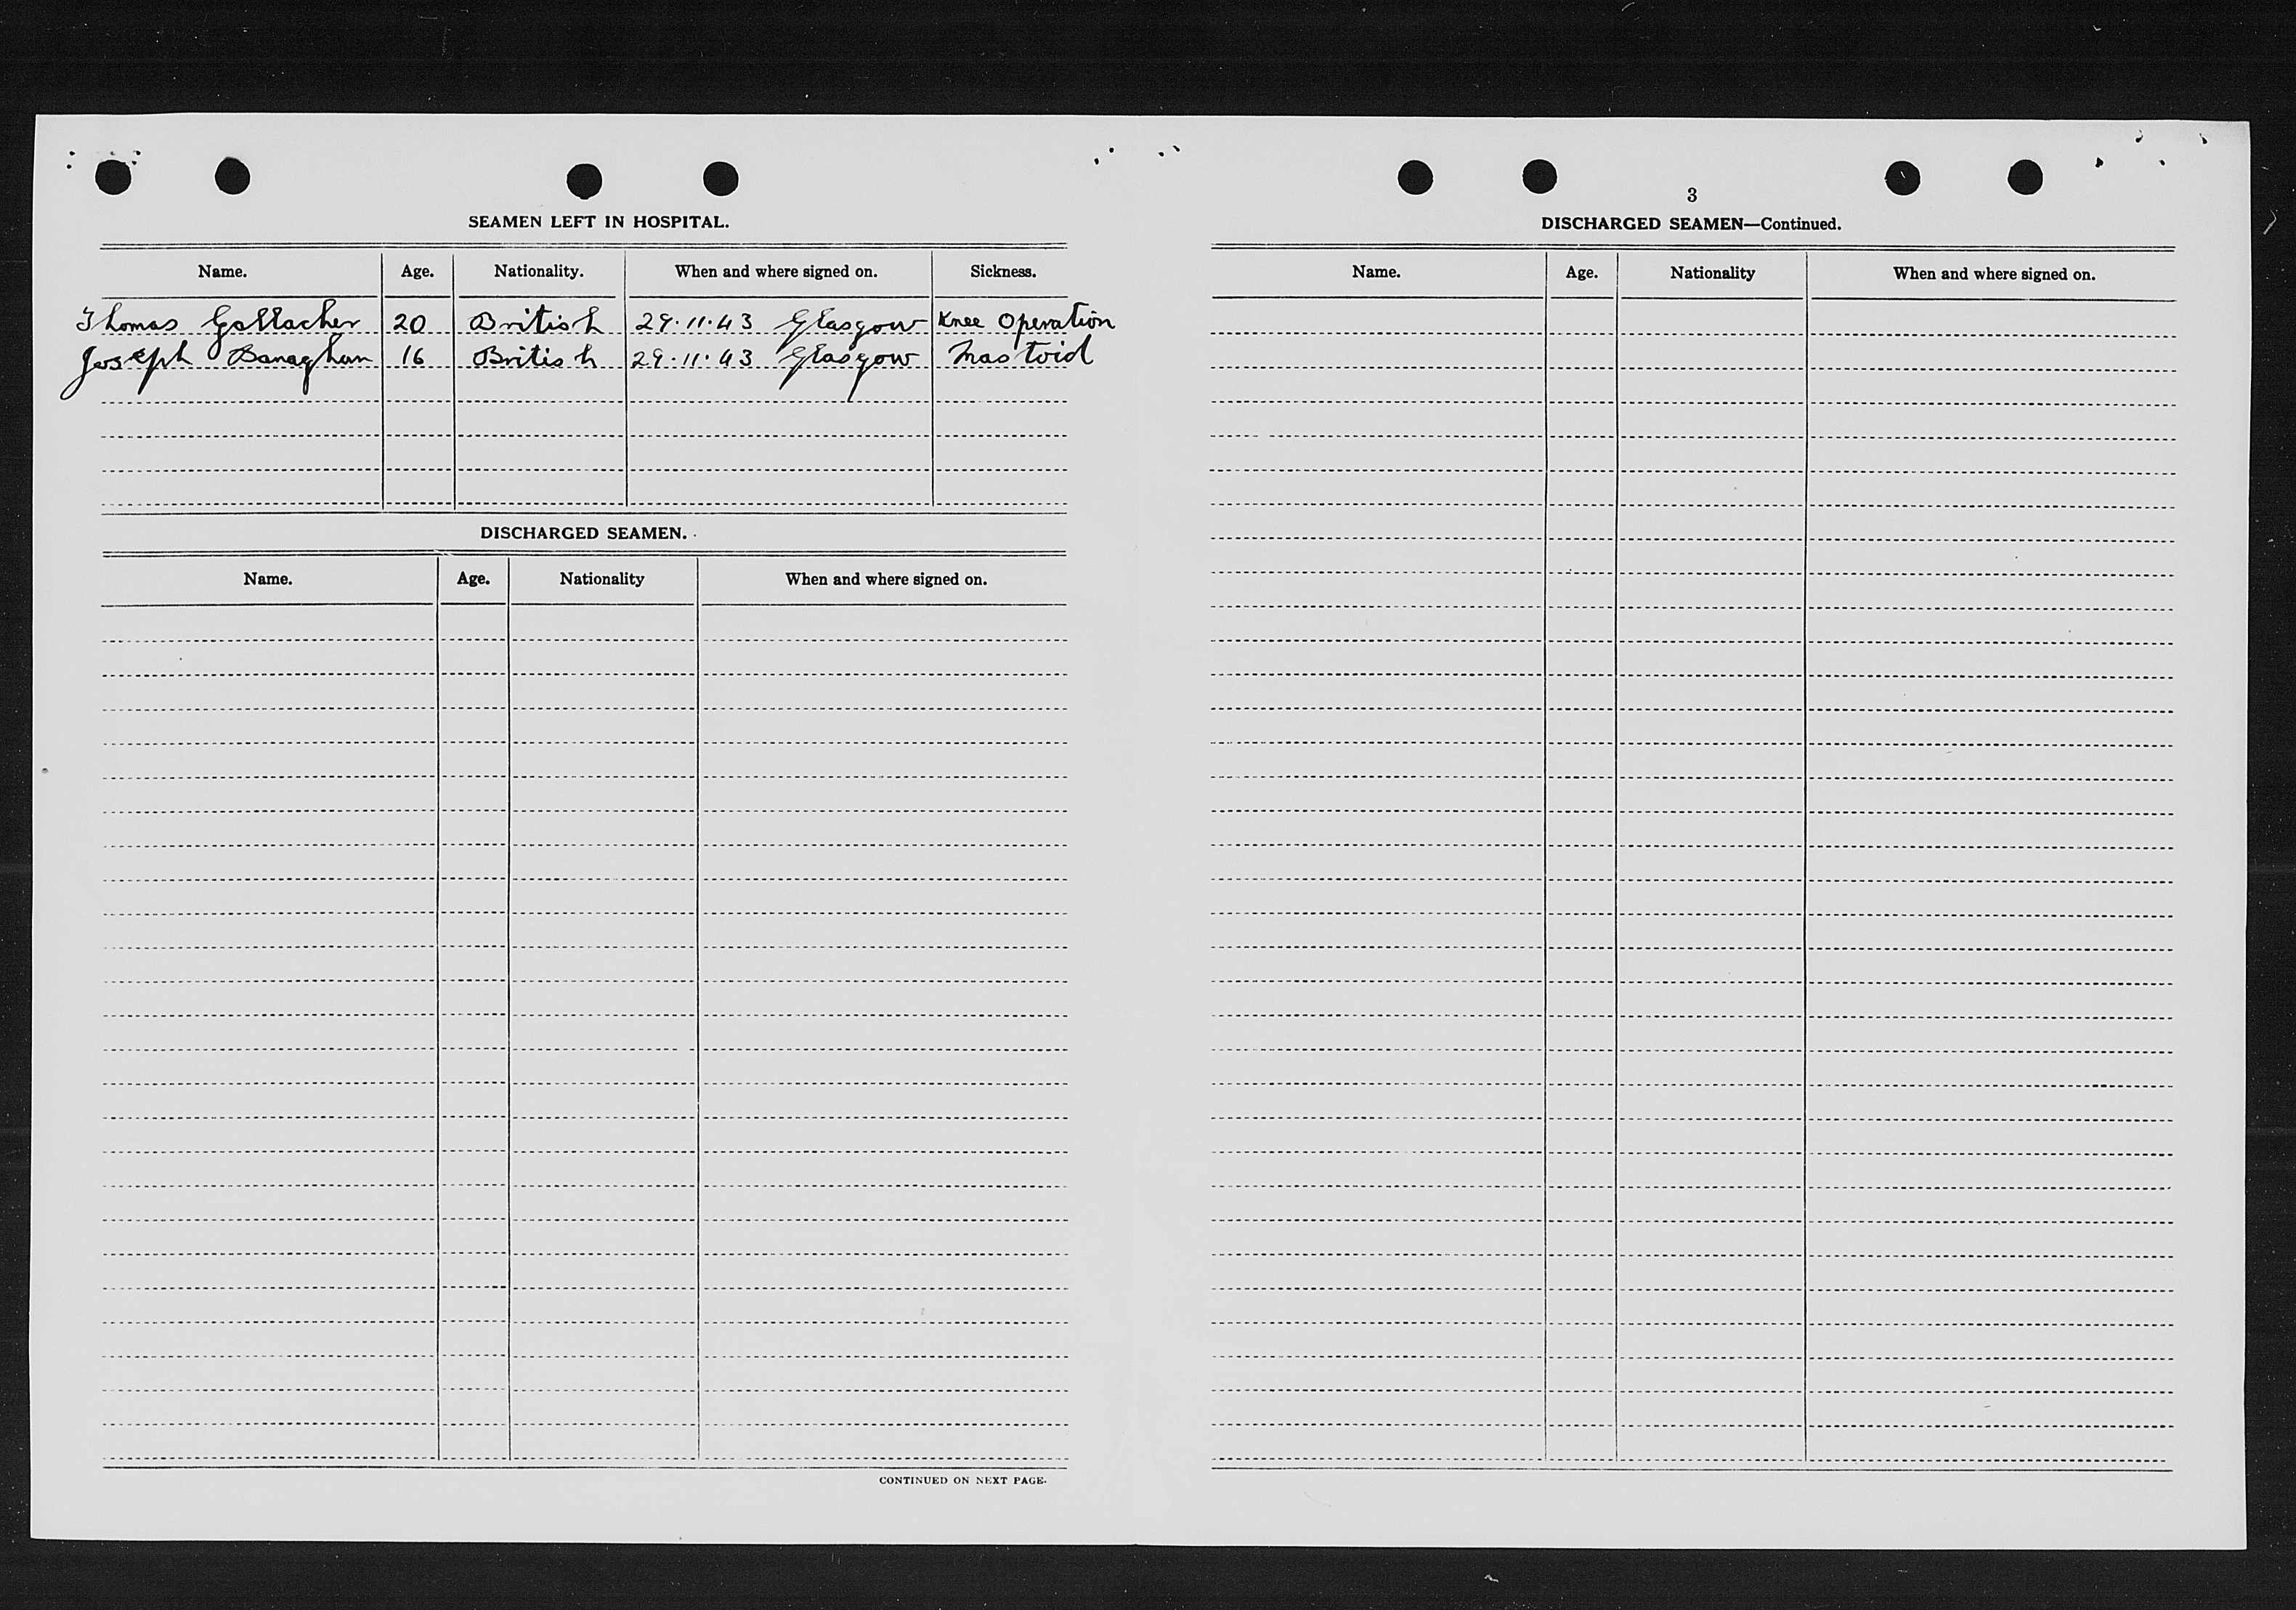 SEAMEN LEFT IN HOSPITAL.
Name. Age. Nationality. When and where signed on. Sickness.
Thomas Gallacher 20 British 29.11.43 Glasgow Knee Operation
Joseph Banaghan 16 British 29.11.43 Glasgow Mastoid
DISCHARGED SEAMEN.
Name. Age. Nationality When and where signed on.
CONTINUED ON NEXT PAGE.
3
DISCHARGED SEAMEN—Continued.
Name. Age. Nationality When and where signed on.